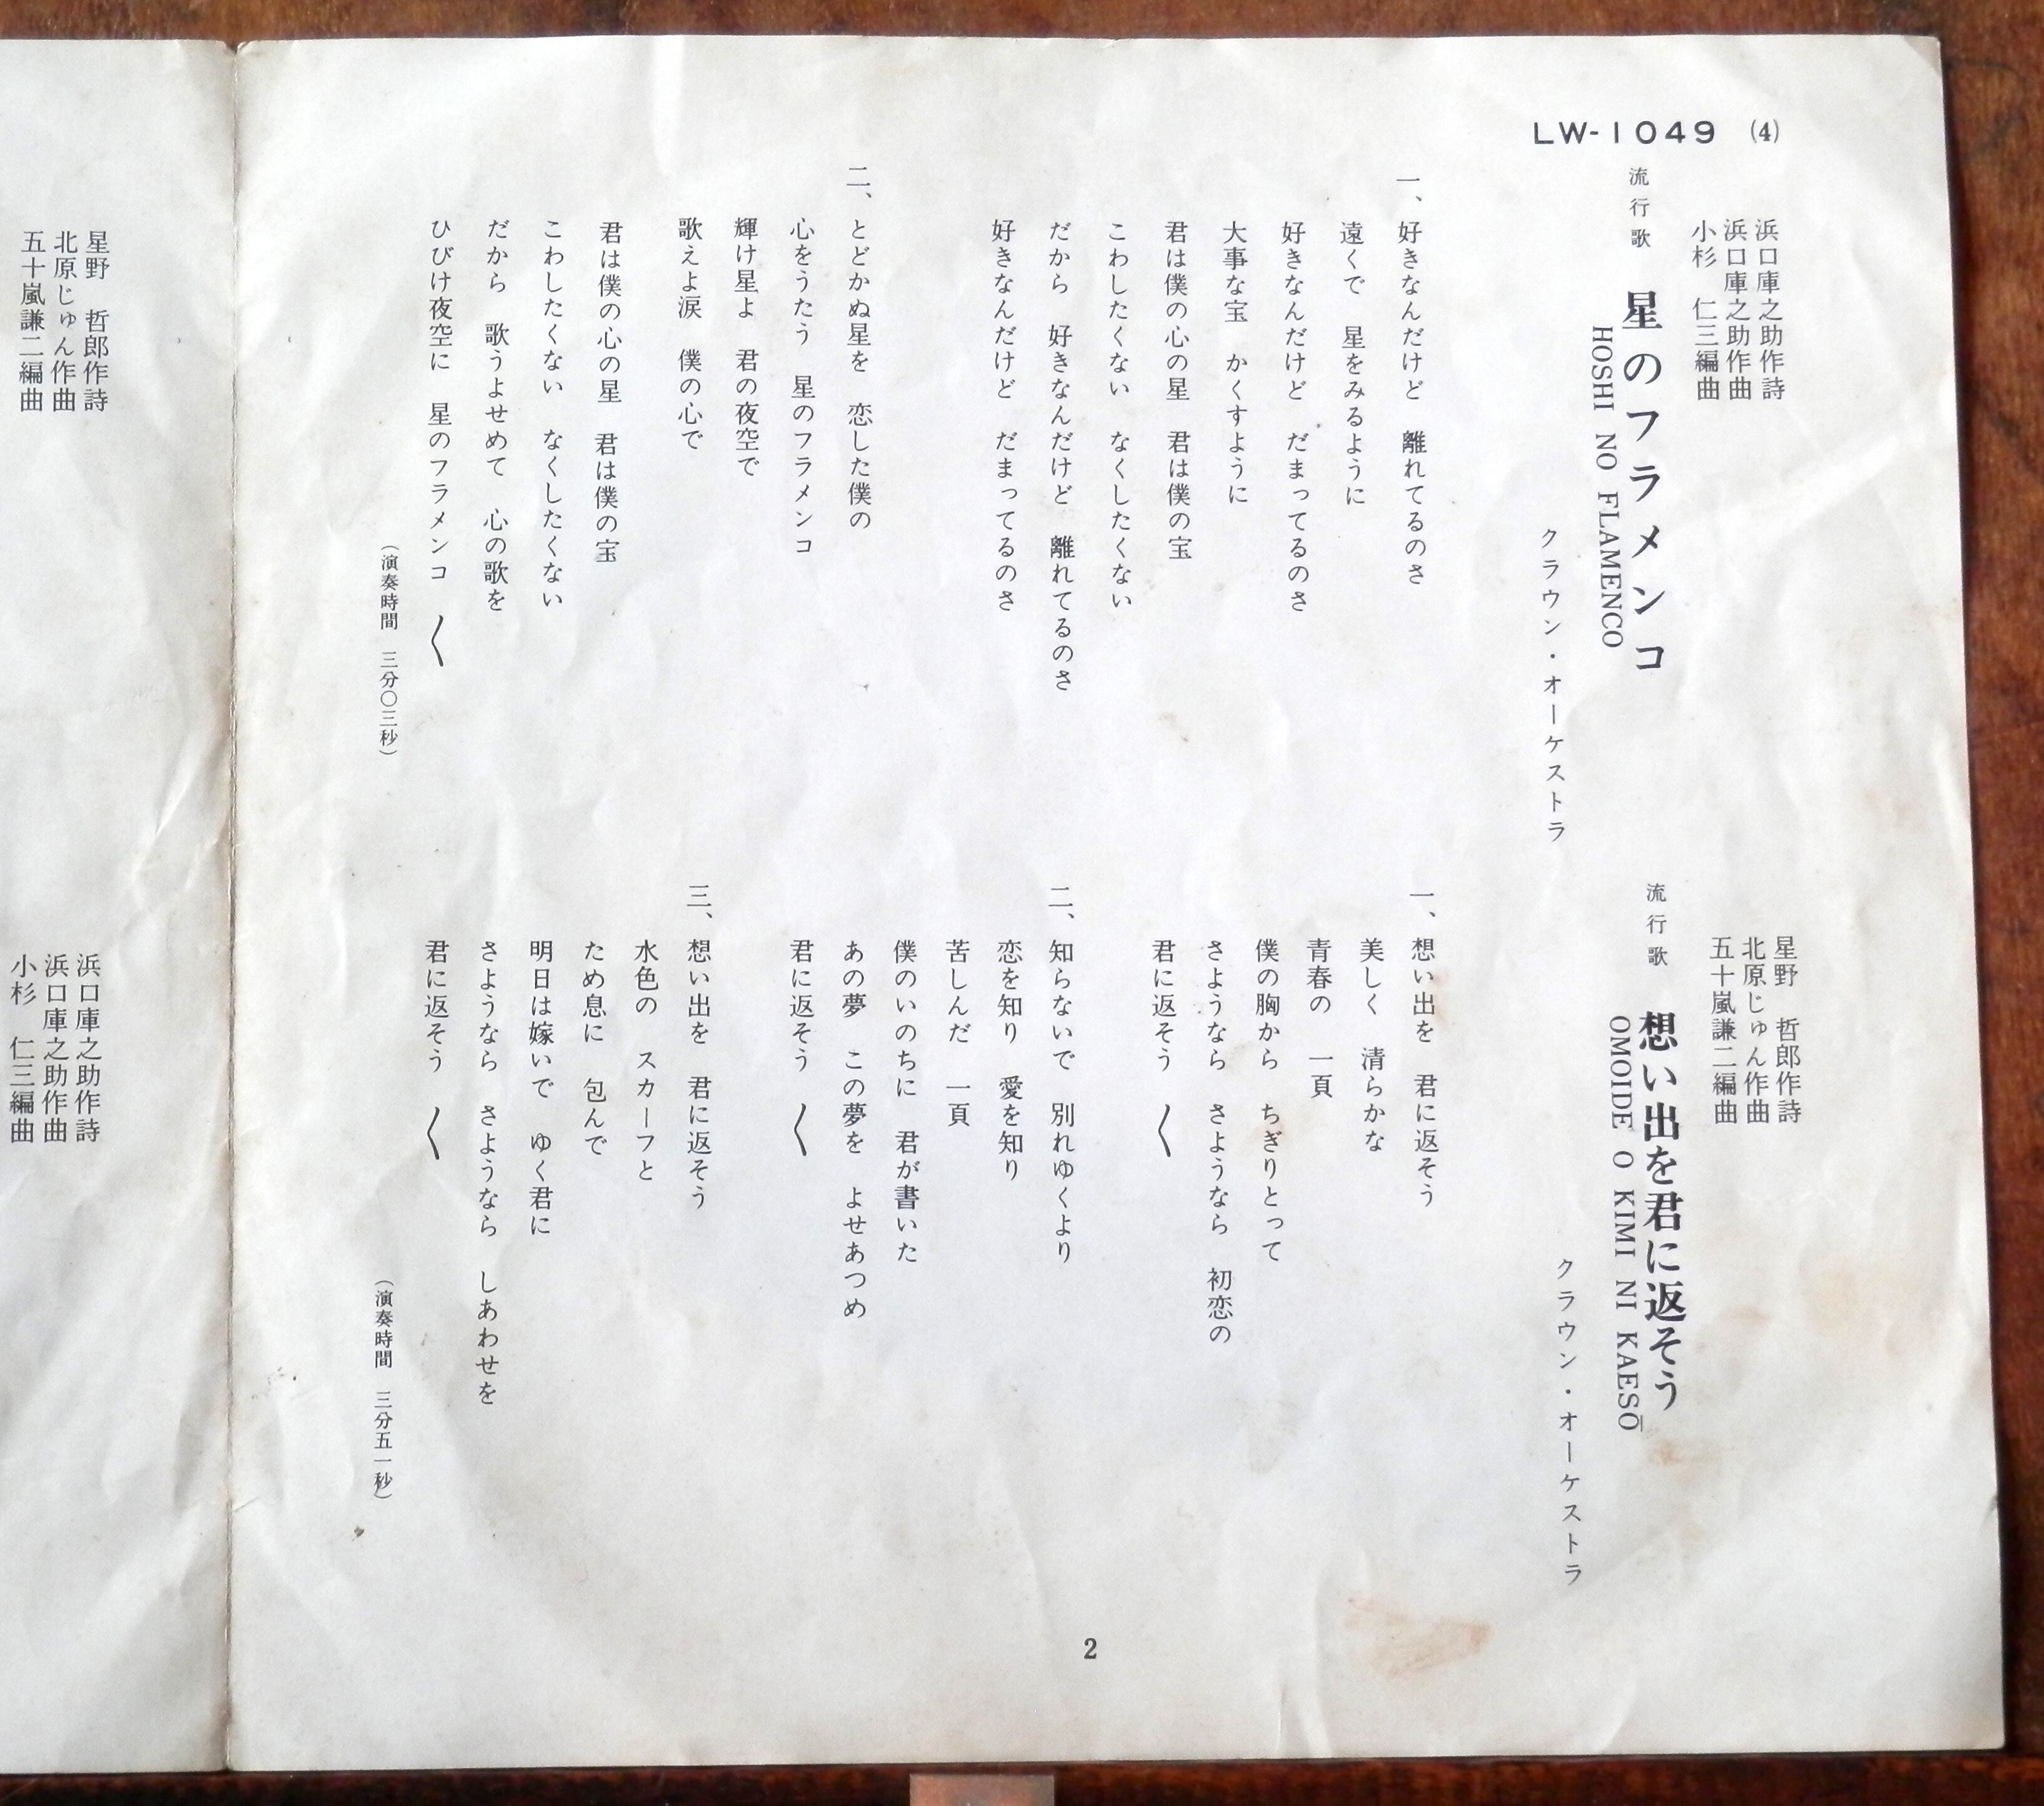 LW-1049 (4)
浜口庫之助作詩
浜口庫之助作曲
小杉　仁三編曲
流行歌　星のフラメンコ
HOSHI NO FLAMENCO
クラウン・オーケストラ
一、好きなんだけど　離れてるのさ
遠くで　星をみるように
好きなんだけど　だまってるのさ
大事な宝　かくすように
君は僕の心の星　君は僕の宝
こわしたくない　なくしたくない
だから　好きなんだけど　離れてるのさ
好きなんだけど　だまってるのさ
二、とどかぬ星を　恋した僕の
心をうたう　星のフラメンコ
輝け星よ　君の夜空で
歌えよ涙　僕の心で
君は僕の心の星　君は僕の宝
こわしたくない　なくしたくない
だから　歌うよせめて　心の歌を
ひびけ夜空に　星のフラメンコ　〱
（演奏時間　三分〇三秒）
星野　哲郎作詩
北原じゅん作曲
五十嵐謙二編曲
流行歌　想い出を君に返そう
OMOIDE O KIMI NI KAESŌ
クラウン・オーケストラ
一、想い出を　君に返そう
美しく　清らかな
青春の　一頁
僕の胸から　ちぎりとって
さようなら　さようなら　初恋の
君に返そう　〱
二、知らないで　別れゆくより
恋を知り　愛を知り
苦しんだ　一頁
僕のいのちに　君が書いた
あの夢　この夢を　よせあつめ
君に返そう　〱
三、想い出を　君に返そう
水色の　スカーフと
ため息に　包んで
明日は嫁いで　ゆく君に
さようなら　さようなら　しあわせを
君に返そう　〱
（演奏時間　三分五一秒）
2
星野　哲郎作詩
北原じゅん作曲
五十嵐謙二編曲
浜口庫之助作詩
浜口庫之助作曲
小杉　仁三編曲